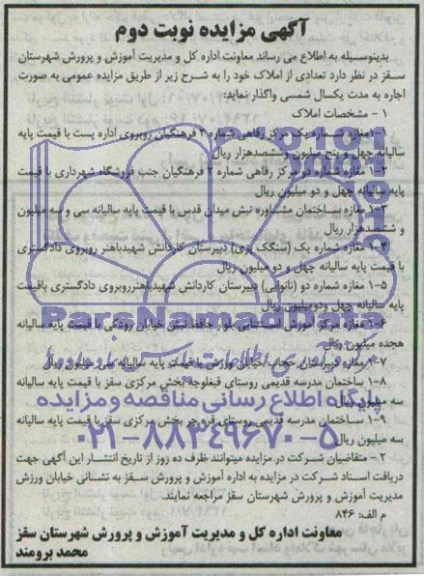 آگهی مزایده نوبت دوم
بدینوسیله به اطلاع می رساند معاونت اداره کل و مدیریت آموزش و پرورش شهرستان
سقز در نظر دارد تعدادی از املاک خود را به شرح زیر از طریق مزایده عمومی به صورت
اجاره به مدت یکسال شمسی واگذار نماید:
۱ - مشخصات املاک
۱-۱ مغازه شماره یک مرکز رفاهی شماره ۲ فرهنگیان روبروی اداره پست با قیمت پایه
سالیانه چهل و پنج میلیون وششصدهزار ریال
۱-۲ مغازه شماره دو مرکز رفاهی شماره ۲ فرهنگیان جنب فروشگاه شهرداری با قیمت
پایه سالیانه چهل و دو میلیون ریال
۱-۳ مغازه ساختمان مشاوره نبش میدان قدس با قیمت پایه سالیانه سی و سه میلیون
و ششصدهزار ریال
۱-۴ مغازه شماره یک (سنگک پزی) دبیرستان کاردانش شهیدباهنر روبروی دادگستری
با قیمت پایه سالیانه چهل و دو میلیون ریال
۱-۵ مغازه شماره دو (نانوایی) دبیرستان کاردانش شهیدباهنرروبروی دادگستری باقیمت
پایه سالیانه چهل ودومیلیون ریال
۱-۶ مغازه مرکز آموزش استثنایی بلوار حافظ نبش خیابان رودکی با قیمت پایه سالیانه
هجده میلیون ریال
۱-۷ مغازه دبیرستان حجاب خیابان ورزش باقیمت پایه سالیانه سی میلیون ریال
۱-۸ ساختمان مدرسه قدیمی روستای قبغلوجه بخش مرکزی سقز با قیمت پایه سالیانه
سه میلیون ریال
۱-۹ ساختمان مدرسه قدیمی روستای بخش مرکزی سقز با قیمت پایه سالیانه
سه میلیون ریال
۲ - متقاضیان شرکت در مزایده میتوانند ظرف ده روز از تاریخ انتشار این آگهی جهت
دریافت اسناد شرکت در مزایده به اداره آموزش و پرورش سقز به نشانی خیابان ورزش
مدیریت آموزش و پرورش شهرستان سقز مراجعه نمایند.
م الف: ۸۴۶
معاونت اداره کل و مدیریت آموزش و پرورش شهرستان سقز
محمد برومند
ParsNamadData
پایگاه اطلاع رسانی مناقصه و مزایده
۰۲۱-۸۸۳۴۹۶۷۰-۵